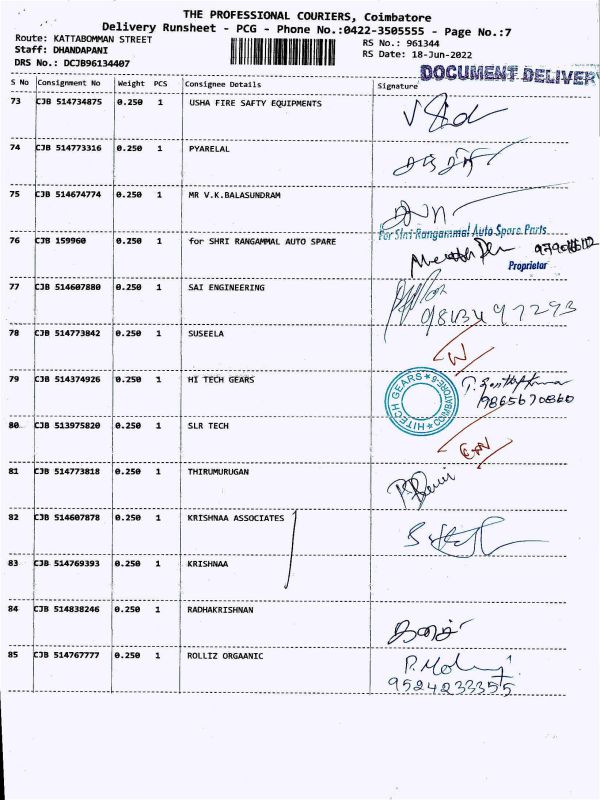 THE PROFESSIONAL COURIERS, Coimbatore
Delivery Runsheet - PCG - Phone No.:0422-3505555 - Page No.:7
Route: KATTABOMMAN STREET
RS No.: 961344
Staff: DHANDAPANI
RS Date: 18-Jun-2022
DRS No.: DCJB96134407
DOCUMENT DELIVERY
S No Consignment No Weight PCS Consignee Details Signature
73 CJB 514734875 0.250 1 USHA FIRE SAFTY EQUIPMENTS
74 CJB 514773316 0.250 1 PYARELAL
75 CJB 514674774 0.250 1 MR V.K.BALASUNDRAM
For Shri Rangammal Auto Spare Parts
76 CJB 159960 0.250 1 for SHRI RANGAMMAL AUTO SPARE
Proprietor
77 CJB 514607880 0.250 1 SAI ENGINEERING
78 CJB 514773842 0.250 1 SUSEELA
79 CJB 514374926 0.250 1 HI TECH GEARS
HITECH GEARS ★ COIMBATORE-6 ★
9865670860
80 CJB 513975820 0.250 1 SLR TECH
81 CJB 514773818 0.250 1 THIRUMURUGAN
82 CJB 514607878 0.250 1 KRISHNAA ASSOCIATES
83 CJB 514769393 0.250 1 KRISHNAA
84 CJB 514838246 0.250 1 RADHAKRISHNAN
85 CJB 514767777 0.250 1 ROLLIZ ORGAANIC
9524233355